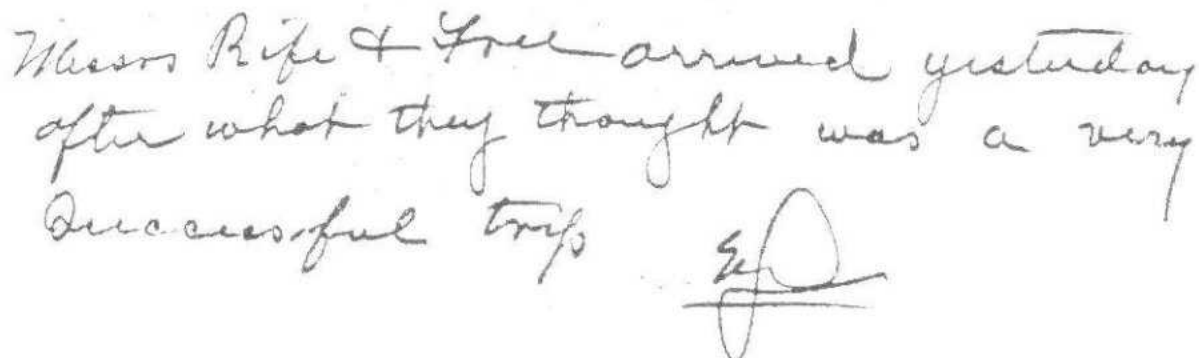 Messrs Rife & Free arrived yesterday
after what they thought was a very
Successful trip